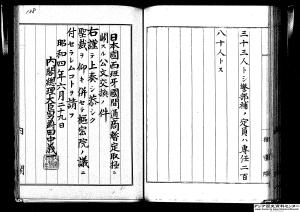 三十三人トシ警部補ノ定員ハ專任二百
八十人トス
日本國西班牙國間通商暫定取極ニ
關スル公文交換ノ件
右謹テ上奏シ恭シク
聖裁ヲ仰キ併セテ樞密院ノ議ニ
付セラレムコトヲ請フ
昭和四年六月二十九日
內閣總理大臣男爵田中義一
內閣
アジア歴史資料センター